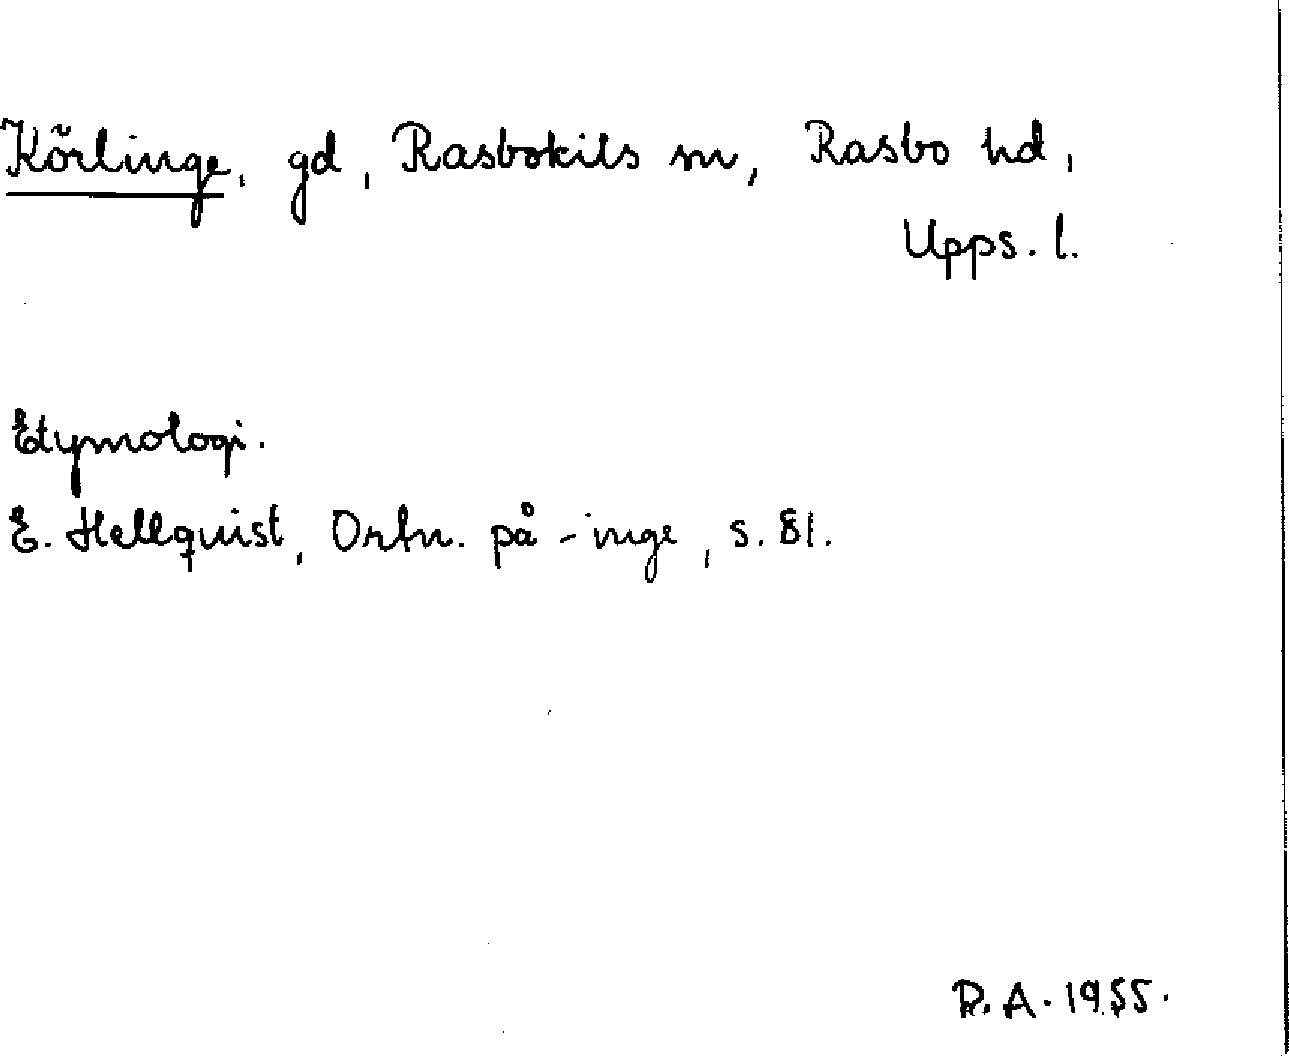 Körlinge, gd, Rasbokils sn, Rasbo hd,
Upps. l.
Etymologi.
E. Hellquist, Ortn. på -inge, s. 81.
R.A. 1955.